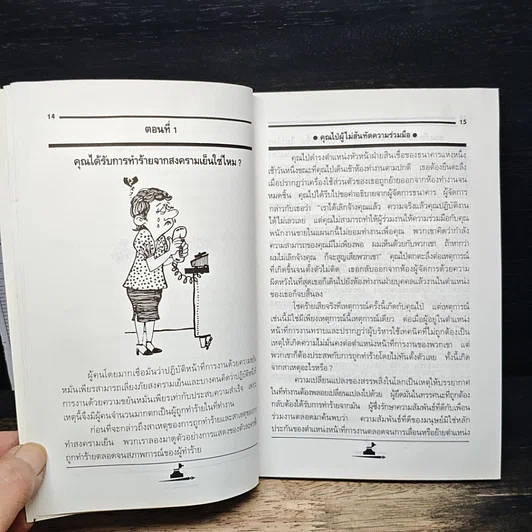 14
ตอนที่ 1
คุณได้รับการทำร้ายจากสงครามเย็นใช่ไหม ?
ผู้คนโดยมากเชื่อมันว่าปฏิบัติหน้าที่การงานด้วยความขยัน
หมั่นเพียรสามารถเลี่ยงภัยสงครามเย็นและบางคนคิดว่าปฏิบัติหน้าที่
การงานด้วยความขยันหมั่นเพียรเท่ากับประสบความสำเร็จ เพราะ
เหตุนี้จึงมีผู้คนจำนวนมากตกเป็นผู้ถูกทำร้ายในที่ทำงาน
ก่อนที่จะกล่าวถึงสาเหตุของการถูกทำร้ายและสาเหตุของการ
ทำสงครามเย็น พวกเราลองมาดูตัวอย่างการแสดงของตัวละคร
ถูกทำร้ายตลอดจนสภาพการณ์ของผู้ทำร้าย
15
• คุณไปผู้ไม่สันทัดความร่วมมือ •
คุณไปดำรงตำแหน่งหัวหน้าฝ่ายสินเชื่อของธนาคารแห่งหนึ่ง
เช้าวันหนึ่งขณะที่คุณไปเดินเข้าห้องทำงานตามปกติ เธอต้องยืนตะลึง
เมื่อปรากฏว่าเครื่องใช้ส่วนตัวของเธอถูกย้ายออกจากห้องทำงานจน
หมดสิ้น คุณไปได้รีบไปขอคำอธิบายจากผู้จัดการธนาคาร ผู้จัดการ
กล่าวกับเธอว่า "เราได้เลิกจ้างคุณแล้ว ความจริงแล้วคุณปฏิบัติงาน
ได้ไม่เลวเลย แต่คุณไม่สามารถทำให้ผู้ร่วมงานให้ความร่วมมือกับคุณ
พนักงานชายในแผนกนี้ไม่ยอมทำงานเพื่อคุณ พวกเขาคิดว่ากำลัง
ความสามารถของคุณมีไม่เพียงพอ ผมเห็นด้วยกับพวกเขา ถ้าหากว่า
ผมไม่เลิกจ้างคุณ ก็จะสูญเสียพวกเขา" คุณไปตกตะลึงต่อเหตุการณ์
ที่เกิดขึ้นจนตั้งตัวไม่ติด เธอกลับออกจากห้องผู้จัดการด้วยความ
มึดหวังในที่สุดเธอก็เดินไปยังห้องทำงานฝ่ายบุคคลแล้วงานในตำแหน่ง
ของเธอก็จบสิ้นลง
โชคร้ายเสียจริงที่เหตุการณ์ครั้งนี้เกิดกับคุณไป แต่เหตุการณ์
เช่นนี้มิใช่มีเพียงเหตุการณ์นี้เหตุการณ์เดียว ต่อเมื่อผู้อยู่ในตำแหน่ง
หน้าที่การงานทราบและปรากฏว่าผู้บริหารใช้เทคนิคที่ไม่ถูกต้องเป็น
เหตุให้เกิดความไม่มั่นคงต่อตำแหน่งหน้าที่การงานของพวกเขา แต่
พวกเขาก็ต้องประสบกับการถูกทำร้ายโดยไม่ทันตั้งตัวเลย ทั้งนี้เกิดจาก
สาเหตุอะไรหรือ?
ความเปลี่ยนแปลงของสรรพสิ่งในโลกเป็นเหตุให้บรรยากาศ
ในที่ทำงานต้องพลอยเปลี่ยนแปลงไปด้วย ผู้ยึดมั่นในทรรศนะที่ถูกต้อง
กลับต้องได้รับการทำร้ายจากมัน ผู้ซึ่งรักษาความสัมพันธ์ที่ดีกับเพื่อน
ร่วมงานตลอดมาค้นพบว่า ความสัมพันธ์ที่ดีของมนุษย์มิใช่หลัก
ประกันของตำแหน่งหน้าที่การงานตลอดจนการเลื่อนหรือย้ายตำแหน่ง